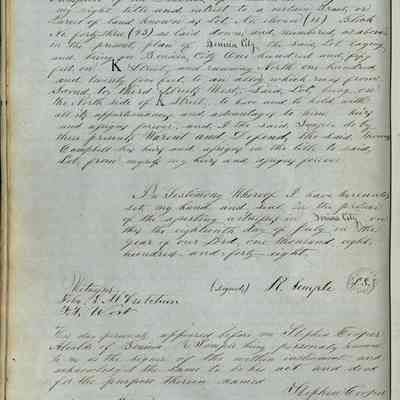 my right title and interest to a certain Tract, or
Parcel of land known as Lot No eleven (11) Block
No forty three (43) as laid down and numbered as above
in the present plan of Benicia City, the said Lot laying
and being in Benicia City One hundred and fifty
feet on K Street, and running North one hundred
and twenty five feet, to an alley which runs from
Second to third Streets West, Said Lot being on
the North side of K Street, to have and to hold with
all its appurtenances and advantages to him heirs
and assigns forever, and I the said Semple do by
these presents Warrant and Defend, the said
Campbell his heirs and assigns in the title to said
Lot, from myself my heirs and assigns forever
In Testimony Whereof I have hereunto
set my hand and seal in the presence
of the aforesaid witnesses in Benicia City on
this the eighteenth day of July in the
year of our Lord, one thousand eight
hundred and forty eight.
Witnesses
(signed) R. Semple (L.S.)
This day personally appeared before me Stephen Cooper
Alcalde of Benicia R Semple being personally known
to me as the signer of the within instrument and
acknowledged the same to be his act and deed
for the purpose therein named
Stephen Cooper